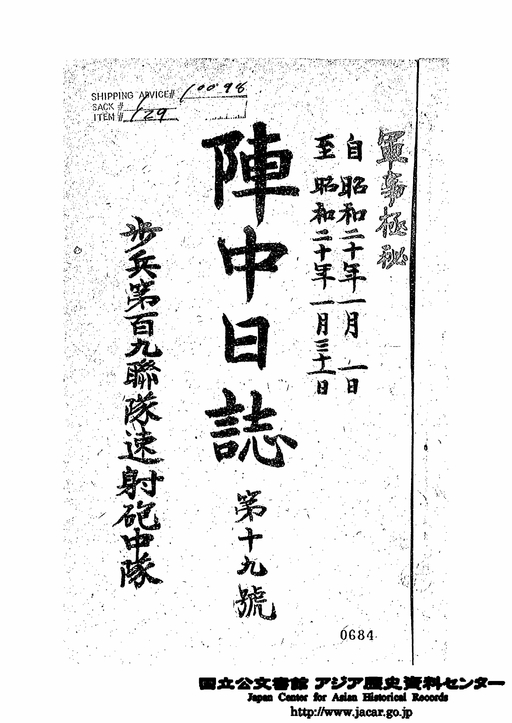 SHIPPING ADVICE# 10098
SACK # 1
ITEM # 129
軍事極秘
自昭和二十年一月一日
至昭和二十年一月三十一日
陣中日誌 第十九號
歩兵第百九聯隊速射砲中隊
0684
国立公文書館 アジア歴史資料センター
Japan Center for Asian Historical Records
http://www.jacar.go.jp